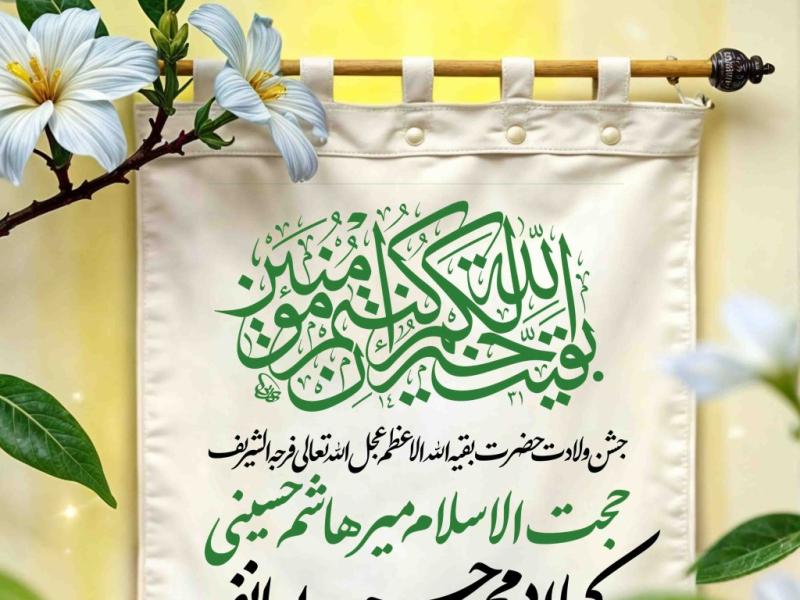 بقیت الله خیر لکم ان کنتم مؤمنین
۱۴۳۱
جشن ولادت حضرت بقیه الله الاعظم عجل الله تعالی فرجه الشریف
حجت الاسلام میرهاشم حسینی
کربلایی